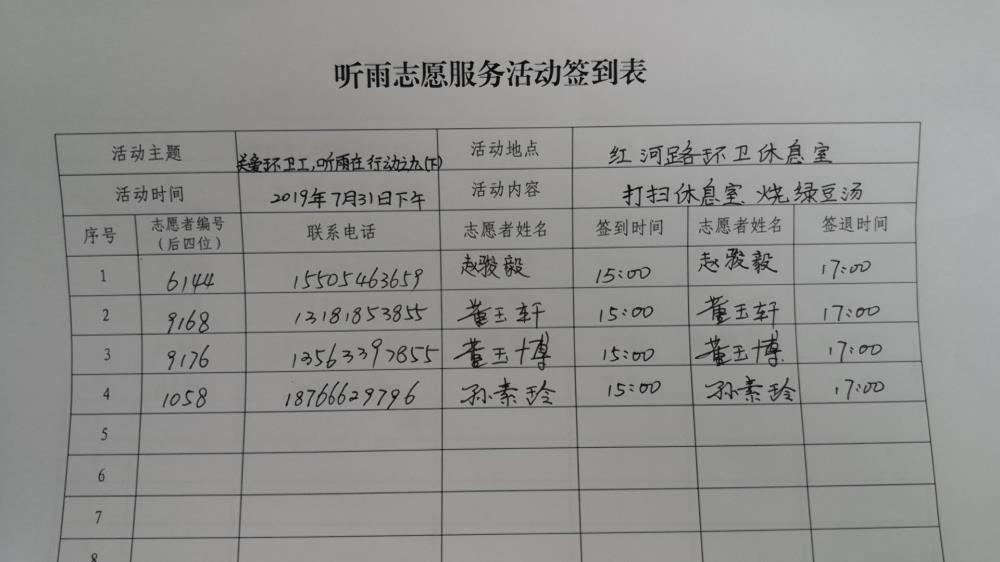 听雨志愿服务活动签到表
活动主题 关爱环卫工,听雨在行动之八(下) 活动地点 红河路环卫休息室
活动时间 2019年7月31日下午 活动内容 打扫休息室、烧绿豆汤
序号 志愿者编号(后四位) 联系电话 志愿者姓名 签到时间 志愿者姓名 签退时间
1 6144 15505463659 赵骏毅 15:00 赵骏毅 17:00
2 9168 13181853855 董玉轩 15:00 董玉轩 17:00
3 9176 13563397855 董玉博 15:00 董玉博 17:00
4 1058 18766629796 孙素玲 15:00 孙素玲 17:00
5
6
7
8